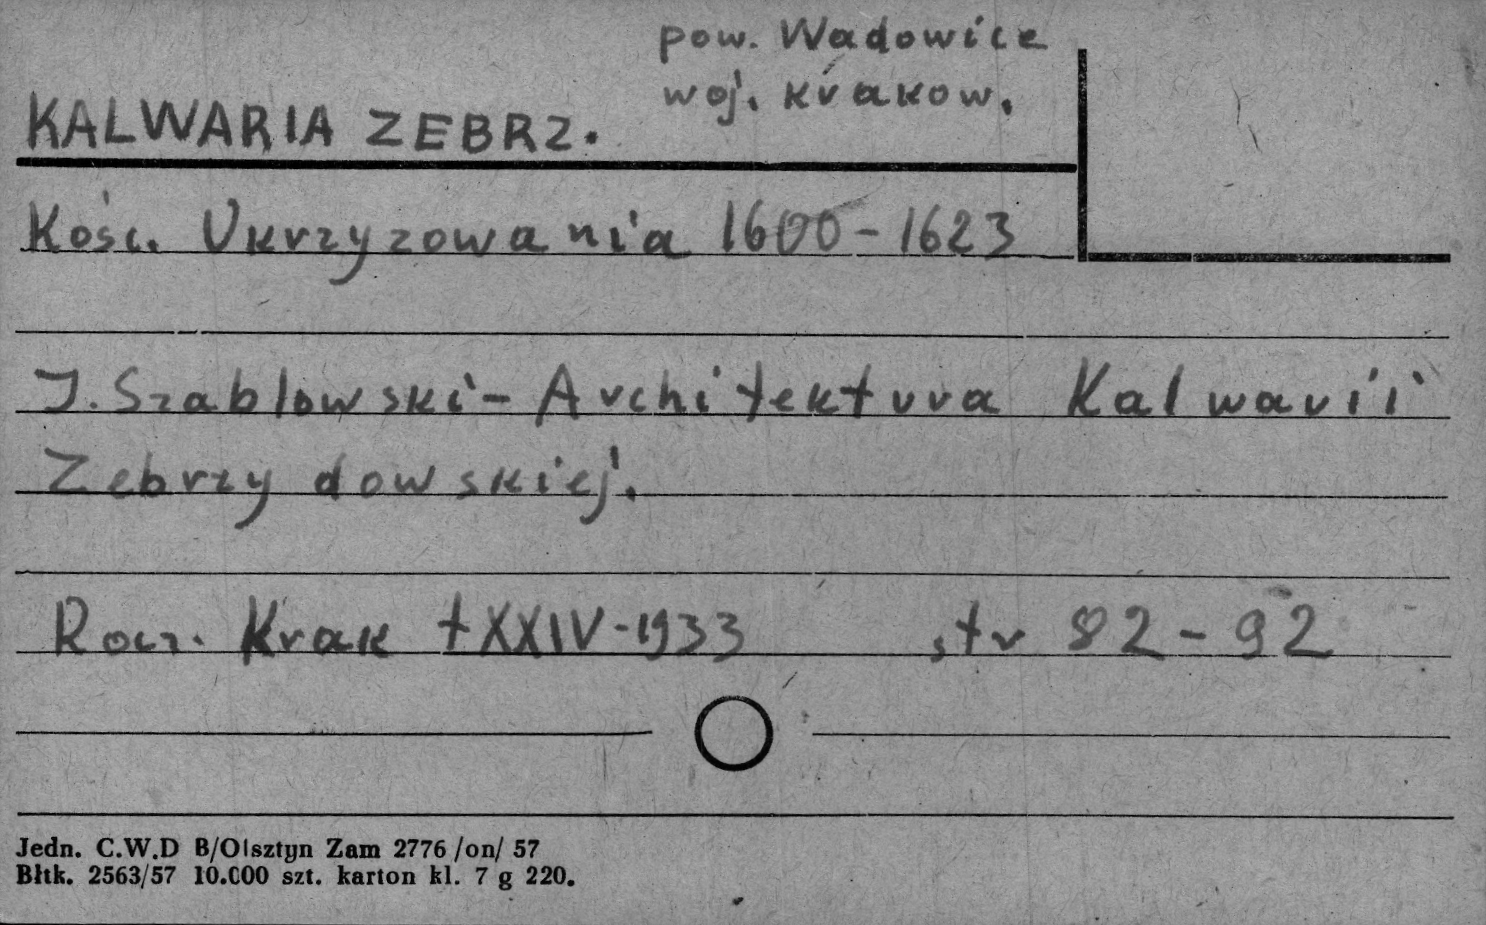 pow. Wadowice
woj. krakow.
KALWARIA ZEBRZ.
Kośc. Ukrzyzowania 1600-1623
J. Szablowski - Architektura Kalwarii
Zebrzydowskiej.
Rocz. Krak t XXIV-1933 str 82-92
Jedn. C.W.D B/Olsztyn Zam 2776/on/ 57
Błtk. 2563/57 10.000 szt. karton kl. 7 g 220.